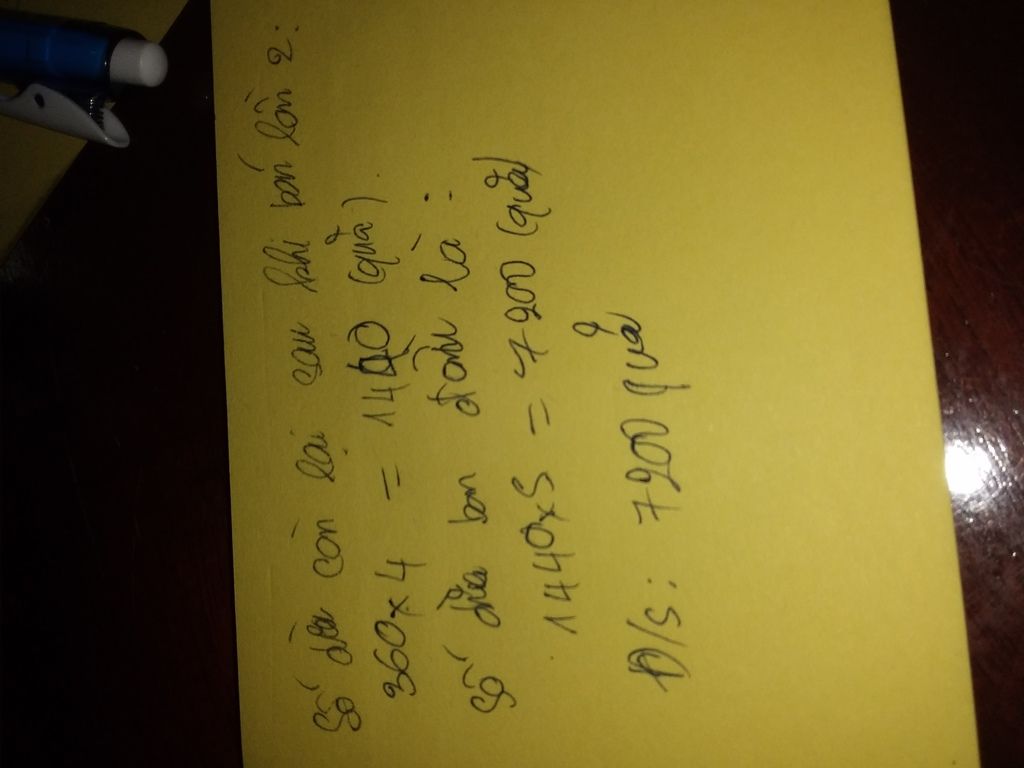 Số dừa còn lại sau khi bán lần 2:
360 x 4 = 1440 (quả).
Số dừa ban đầu là :
1440 x 5 = 7200 (quả)
Đ/S: 7200 quả